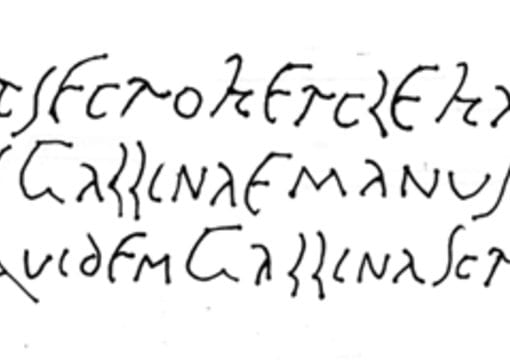 PSECRO HERCLE HA
GALLINAE MANUS
QUIDEM GALLINA SCR